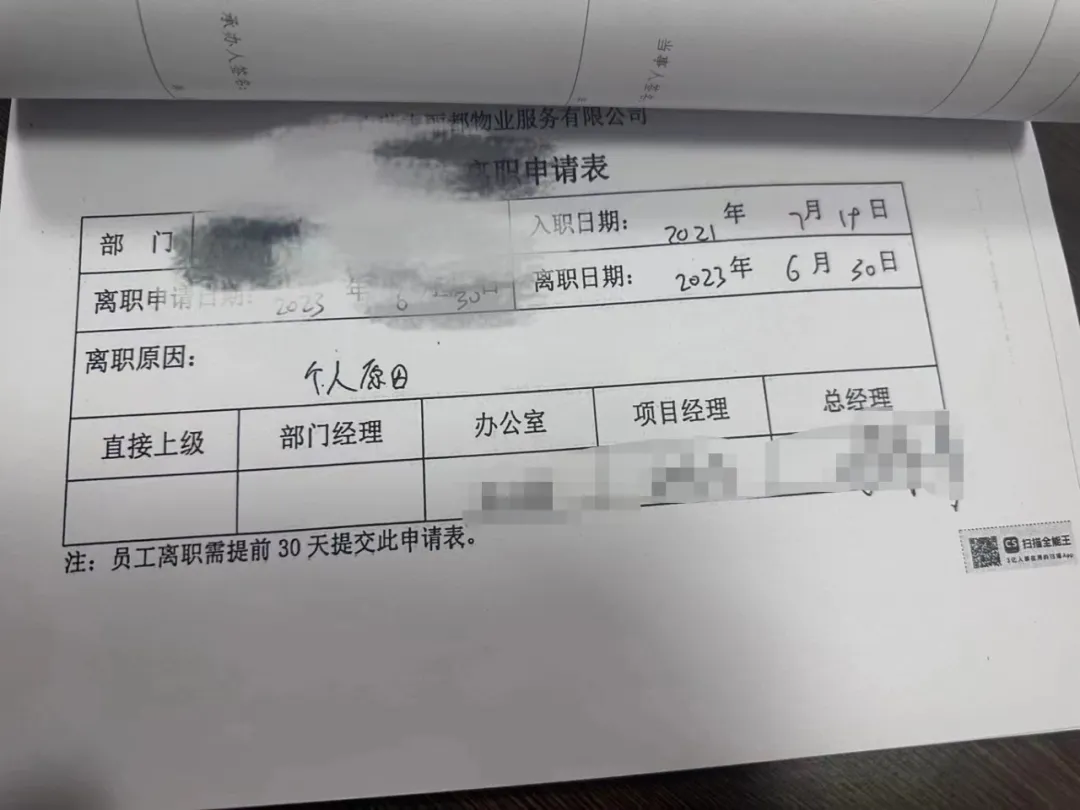 承办人签名:
当事人签名
都物业服务有限公司
离职申请表
部 门
入职日期: 2021年 7月 19日
离职申请日期: 2023年 6月 30日
离职日期: 2023年 6月 30日
离职原因:
个人原因
直接上级 部门经理 办公室 项目经理 总经理
注:员工离职需提前30天提交此申请表。
CS 扫描全能王
3亿人都在用的扫描App